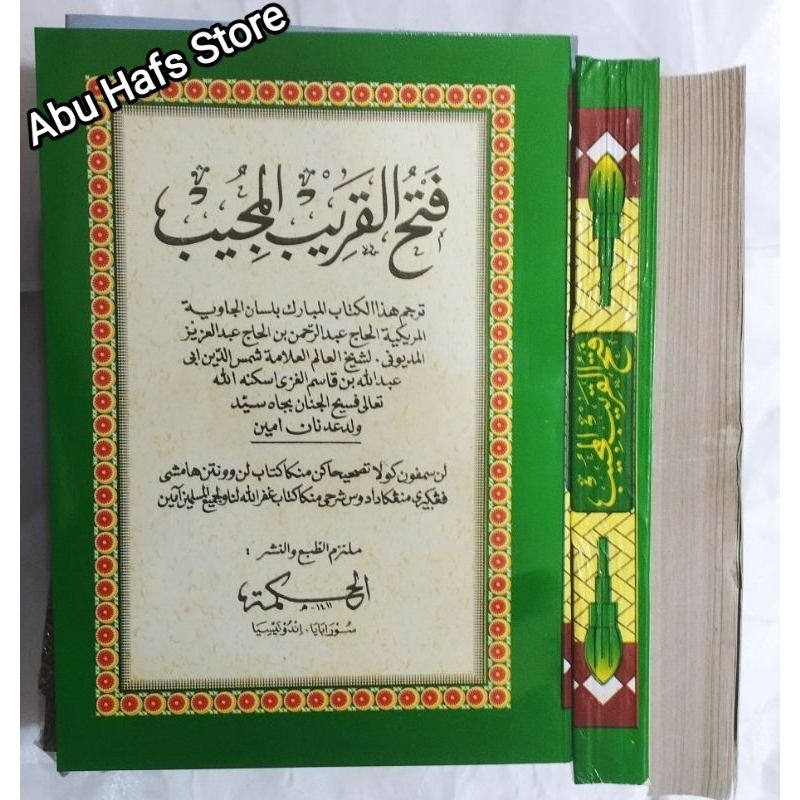 Abu Hafs Store
فَتْحُ الْقَرِيْبِ الْمُجِيْبِ
ترجم هذا الكتاب المبارك بلسان الجاوية
المريكية الحاج عبدالرحمن بن الحاج عبدالعزيز
المديوني. لشيخ العالم العلامة شمس الدين ابى
عبدالله بن قاسم الغزى اسكنه الله
تعالى فسيح الجنان بجاه سيّد
ولد عدنان امين
لن سمفون كولا تصحيحاكن منكا كتاب لن وونتن هامشى
منكا كتاب غفر الله لنا ولجميع المسلمين آمين
ملتزم الطبع والنشر :
الحكمة
١٤١١ - ھ
سورابايا. إندونيسيا
فتح القريب المجيب